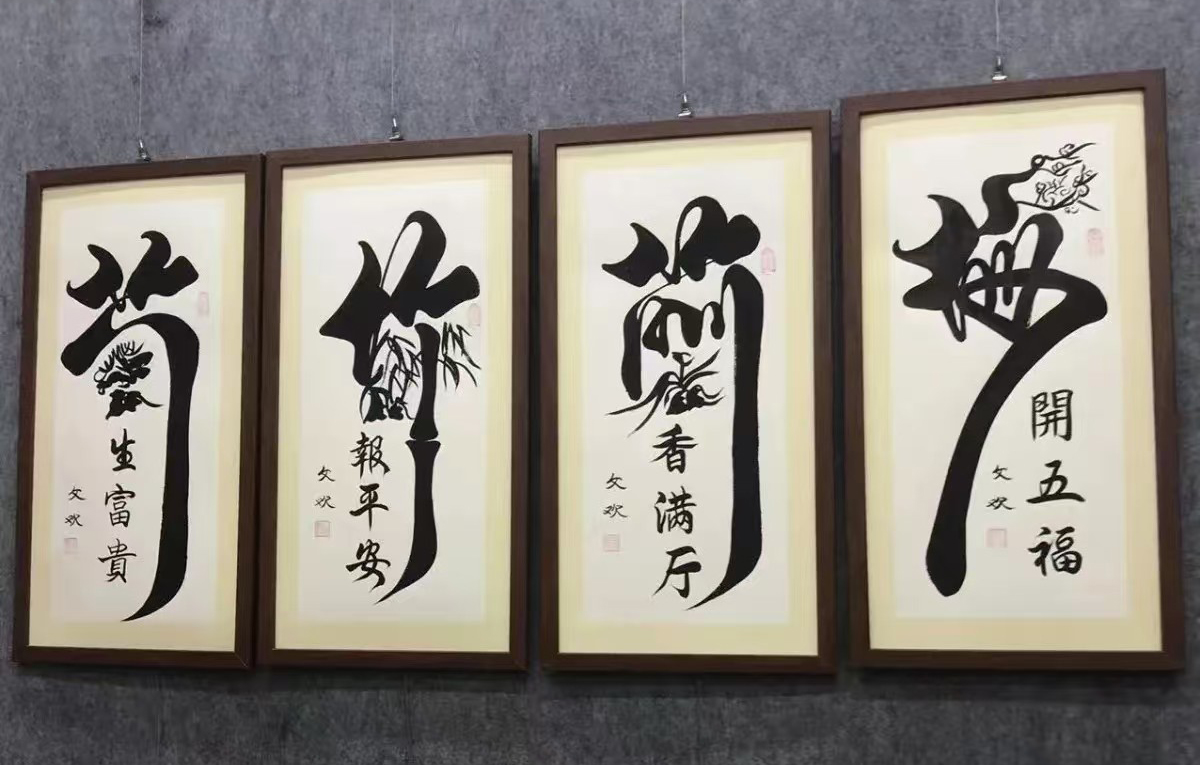 梅開五福
文欢
蘭香满厅
文欢
竹報平安
文欢
菊生富貴
文欢